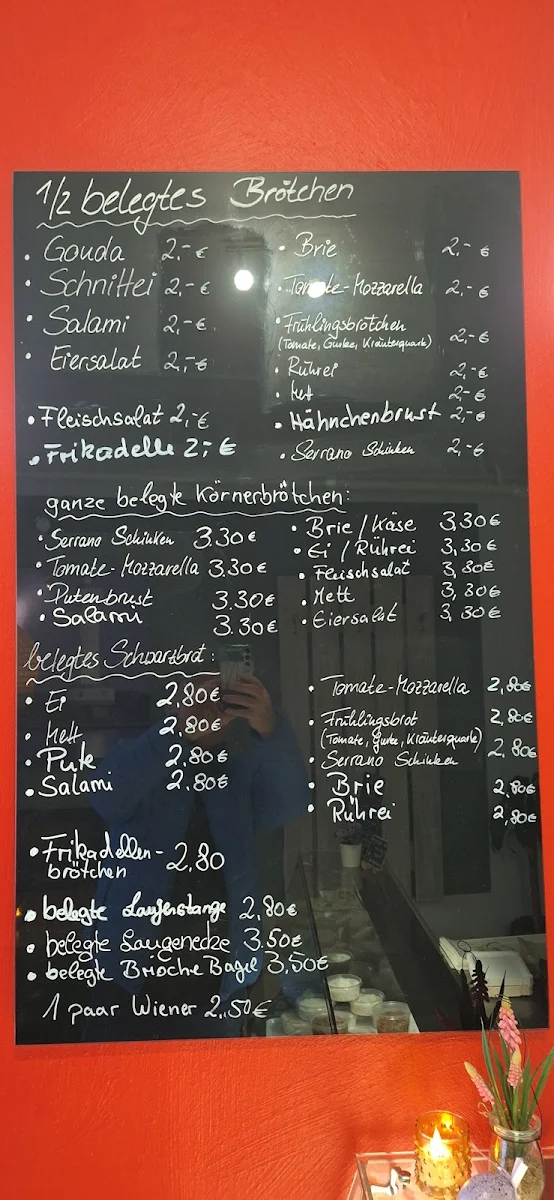 1/2 belegtes Brötchen
• Gouda 2,-€
• Schnittei 2,-€
• Salami 2,-€
• Eiersalat 2,-€
• Fleischsalat 2,-€
• Frikadelle 2,-€
• Brie 2,-€
• Tomate-Mozzarella 2,-€
• Frühlingsbrötchen
(Tomate, Gurke, Kräuterquark) 2,-€
• Rührei 2,-€
• Mett 2,-€
• Hähnchenbrust 2,-€
• Serrano Schinken 2,-€
ganze belegte Körnerbrötchen:
• Serrano Schinken 3.30€
• Tomate-Mozzarella 3.30€
• Putenbrust 3.30€
• Salami 3.30€
• Brie / Käse 3,30€
• Ei / Rührei 3,30€
• Fleischsalat 3,30€
• Mett 3,30€
• Eiersalat 3,30€
belegtes Schwarzbrot:
• Ei 2,80€
• Mett 2,80€
• Pute 2.80€
• Salami 2.80€
• Tomate-Mozzarella 2,80€
• Frühlingsbrot 2,80€
(Tomate, Gurke, Kräuterquark)
• Serrano Schinken 2,80€
• Brie 2,80€
• Rührei 2,80€
• Frikadellen- 2,80
brötchen
• belegte Laugenstange 2,80€
• belegte Laugenecke 3.50€
• belegte Brioche Bagel 3,50€
1 paar Wiener 2,50€